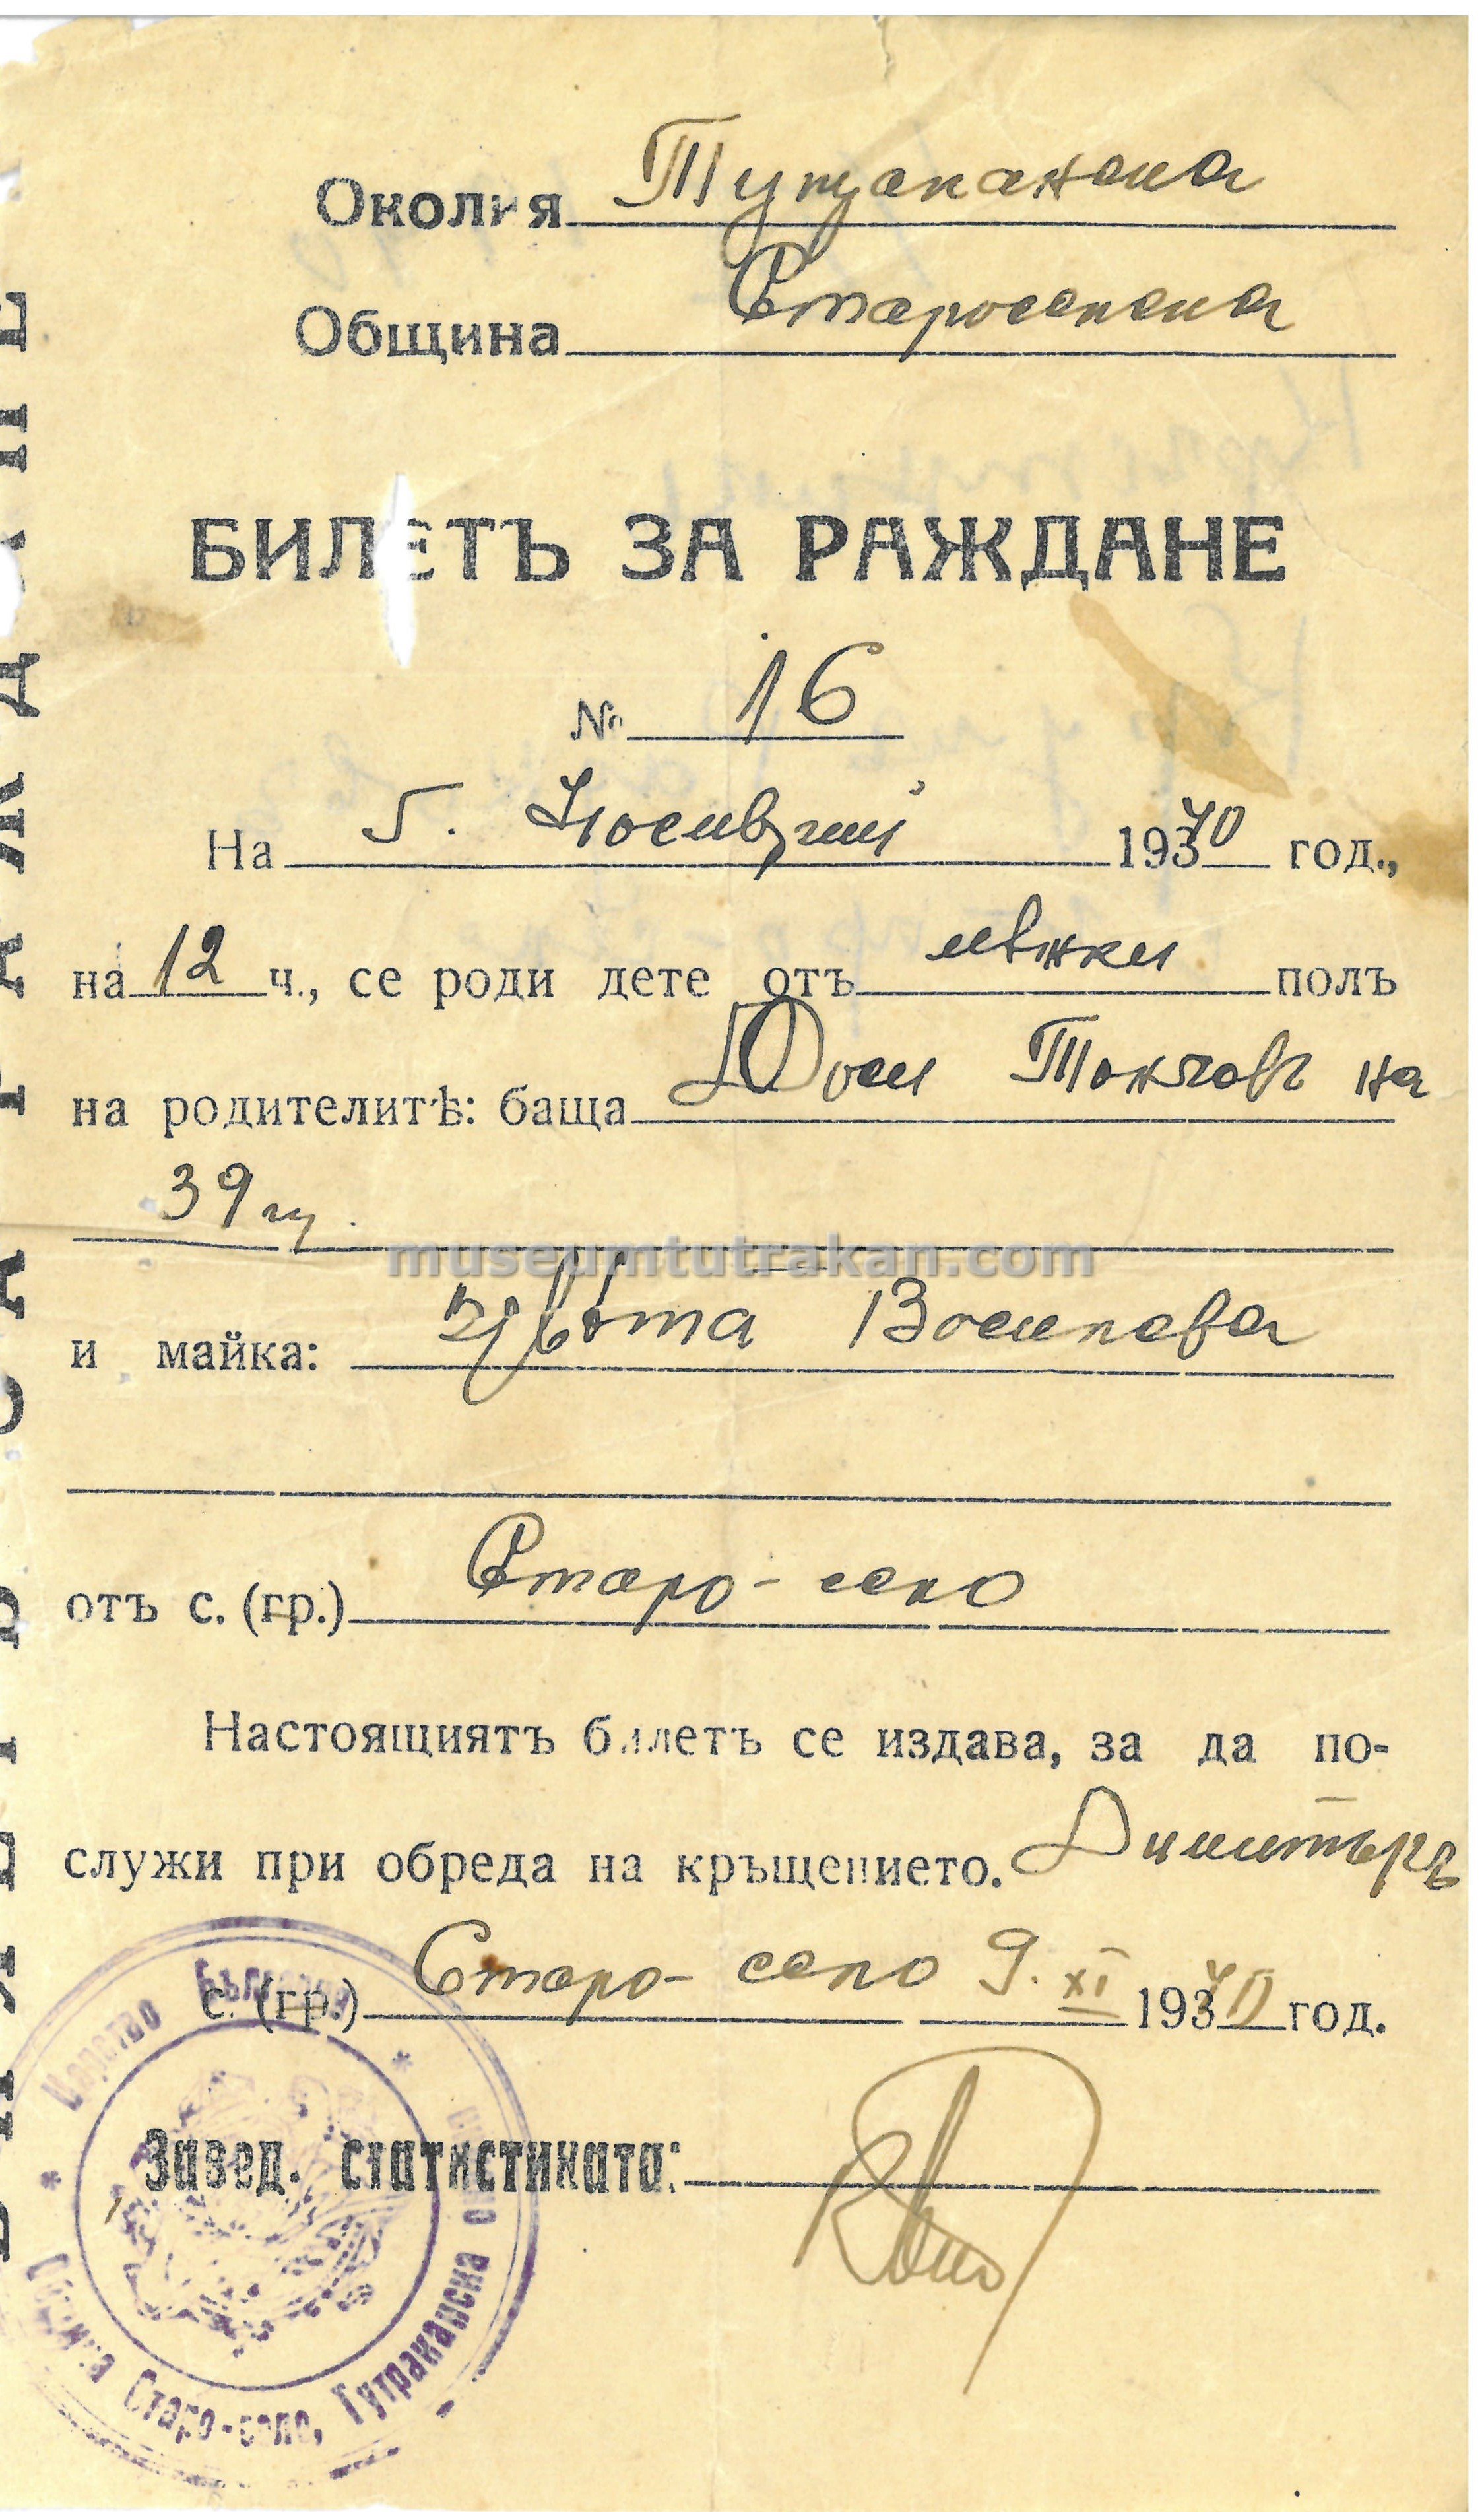 Околия Тутраканска
Община Староселска
БИЛЕТЪ ЗА РАЖДАНЕ
№ 16
На 5. Ноемврий 1940 год.,
на 12 ч., се роди дете отъ мѫжки полъ
на родителитѣ: баща Доси Токчовъ на
39 г.
museumtutrakan.com
и майка: Цвѣта Василева
отъ с. (гр.) Старо-село
Настоящиятъ билетъ се издава, за да по-
служи при обреда на кръщението. Димитъръ
с. (гр.) Старо-село 9. XI 1940 год.
Завед. статистиката:
Царство България
Община Старо-село, Тутраканска околия